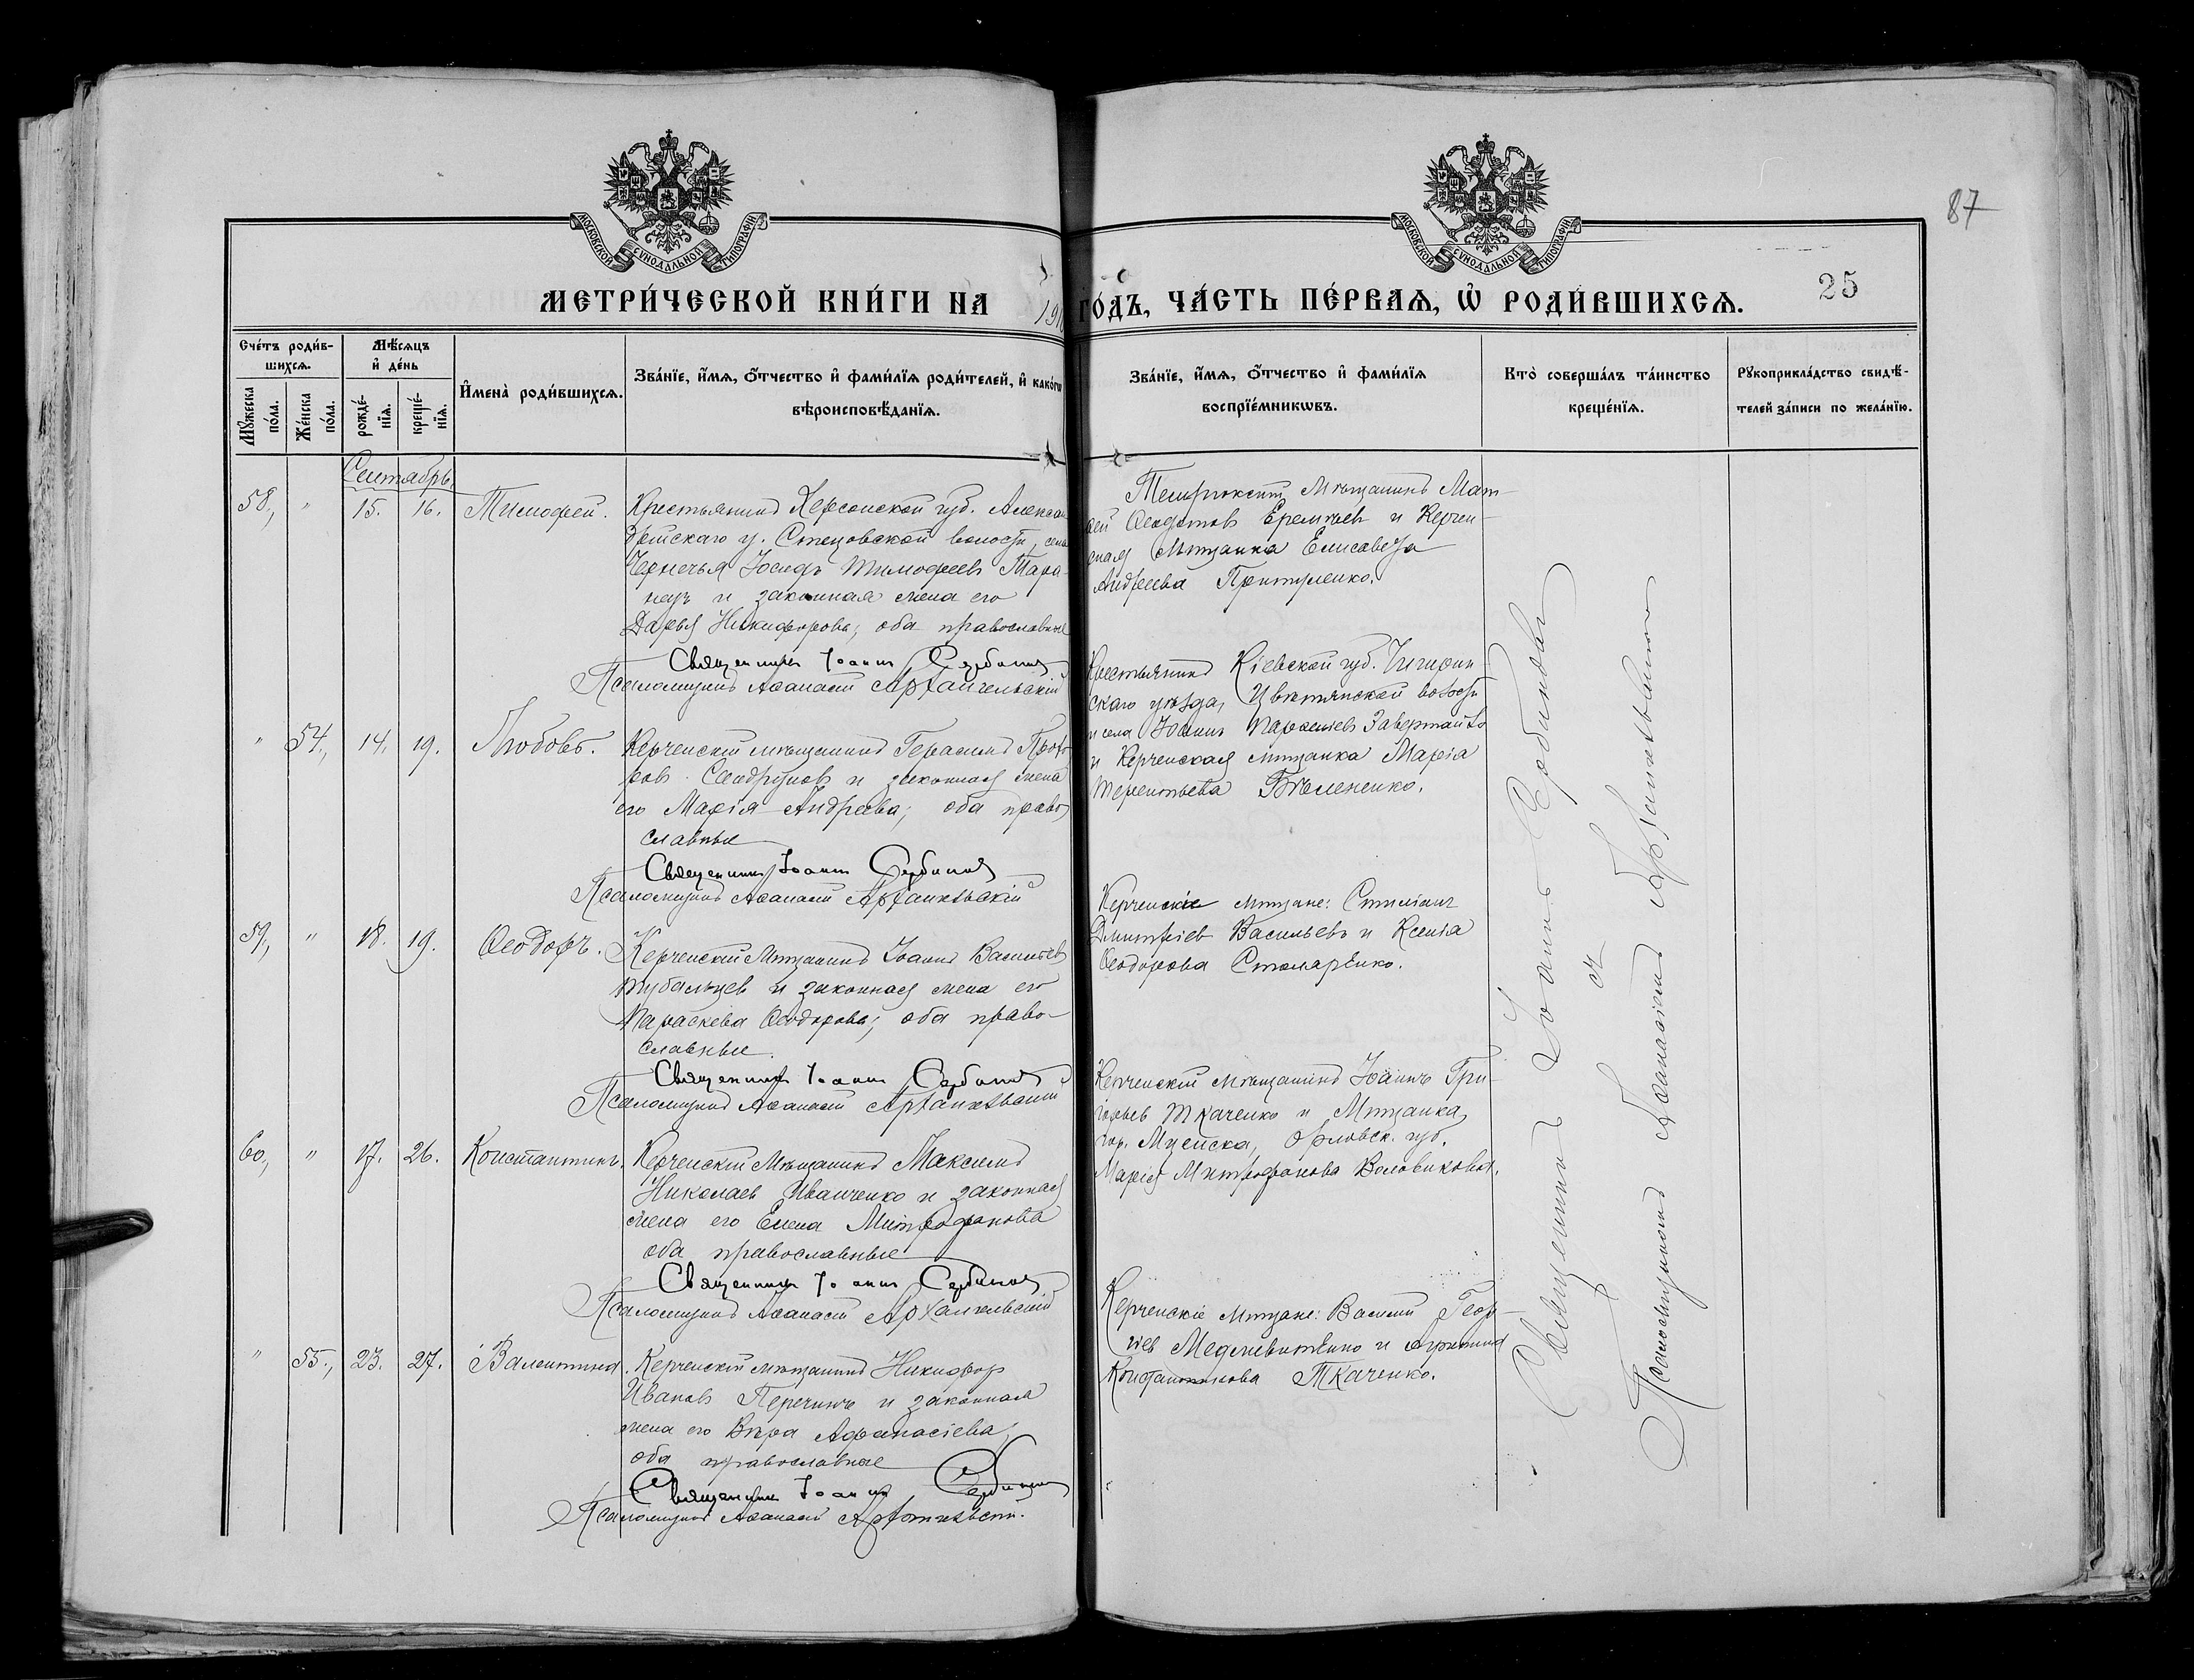 87
25
МОСКОВСКОЙ СѴНОДАЛЬНОЙ ТИПОГРАФІИ
МОСКОВСКОЙ СѴНОДАЛЬНОЙ ТИПОГРАФІИ
МЕТРИ́ЧЕСКОЙ КНИ́ГИ НА 191
ГО́ДЪ, ЧА́СТЬ ПЕ́РВАѦ, Ѡ҆ РОДИ́ВШИХСѦ.
Сче́тъ роди́в-
шихсѧ.
Мѣ́сѧцъ
и҆ де́нь
Мꙋ́жеска
по́ла.
Же́нска
по́ла.
рожде́-
нїѧ.
креще́-
нїѧ.
И҆мена̀ роди́вшихсѧ.
Зва́нїе, и҆́мѧ, ѻ҆́тчество и҆ фами́лїѧ роди́телей, и҆ како́гѡ
вѣроисповѣ́данїѧ.
Зва́нїе, и҆́мѧ, ѻ҆́тчество и҆ фами́лїѧ
воспрїе́мникѡвъ.
Кто̀ соверша́лъ та́инство
креще́нїѧ.
Рꙋкоприкла́дство свидѣ́-
телей за́писи по жела́нїю.
Сентябрь.
58., " 15. 16. Тимофей.
Крестьянинъ Херсонской губ. Алексан
дрійскаго у. Стецовской волости, села
Чернечья Іосифъ Тимофеевъ Тара-
нецъ и законная жена его
Дарья Никифорова; оба православные
Священникъ Іоаннъ Сербиновъ
Псаломщикъ Аѳанасій Архангельскій
Темрюкскій мѣщанинъ Мат-
ѳей Ѳеодотовъ Еремѣевъ и Керчен-
ская мѣщанка Елисавета
Андреева Притуленко.
" 54., 14. 19. Любовь.
Керченскій мѣщанинъ Герасимъ Прохо
ровъ Сандруновъ и законная жена
его Марія Андреева; оба право
славные
Священникъ Іоаннъ Сербиновъ
Псаломщикъ Аѳанасій Архангельскій
Крестьянинъ Кіевской губ. Чигирин
скаго уѣзда, Цвѣтянской волости
и села Іоаннъ Парѳеніевъ Завертайло
и Керченская мѣщанка Марія
Терентьева Бѣлененко.
59., " 18. 19. Ѳеодоръ.
Керченскій мѣщанинъ Іоаннъ Васильевъ
Тубальцевъ и законная жена его
Параскева Ѳеодорова; оба право-
славные.
Священникъ Іоаннъ Сербиновъ
Псаломщикъ Аѳанасій Архангельскій
Керченскіе мѣщане: Стиліанъ
Димитріевъ Васильевъ и Ксенія
Ѳеодорова Столяренко.
60., " 17. 26. Константинъ.
Керченскій мѣщанинъ Максимъ
Николаевъ Иванченко и законная
жена его Елена Митрофанова
оба православные
Священникъ Іоаннъ Сербиновъ
Псаломщикъ Аѳанасій Архангельскій
Керченскій мѣщанинъ Іоаннъ Гри-
горьевъ Ткаченко и мѣщанка
гор. Мценска, Орловск. губ.
Марія Митрофанова Воловикова.
" 55., 23. 27. Валентина.
Керченскій мѣщанинъ Никифоръ
Ивановъ Перечинъ и законная
жена его Вѣра Афанасіева;
оба православные
Священникъ Іоаннъ Сербиновъ
Псаломщикъ Аѳанасій Архангельскій.
Керченскіе мѣщане: Василій Геор-
гіевъ и
Константинова Ткаченко.
Священникъ Іоаннъ Сербиновъ
съ
Псаломщикомъ Аѳанасіемъ Архангельскимъ